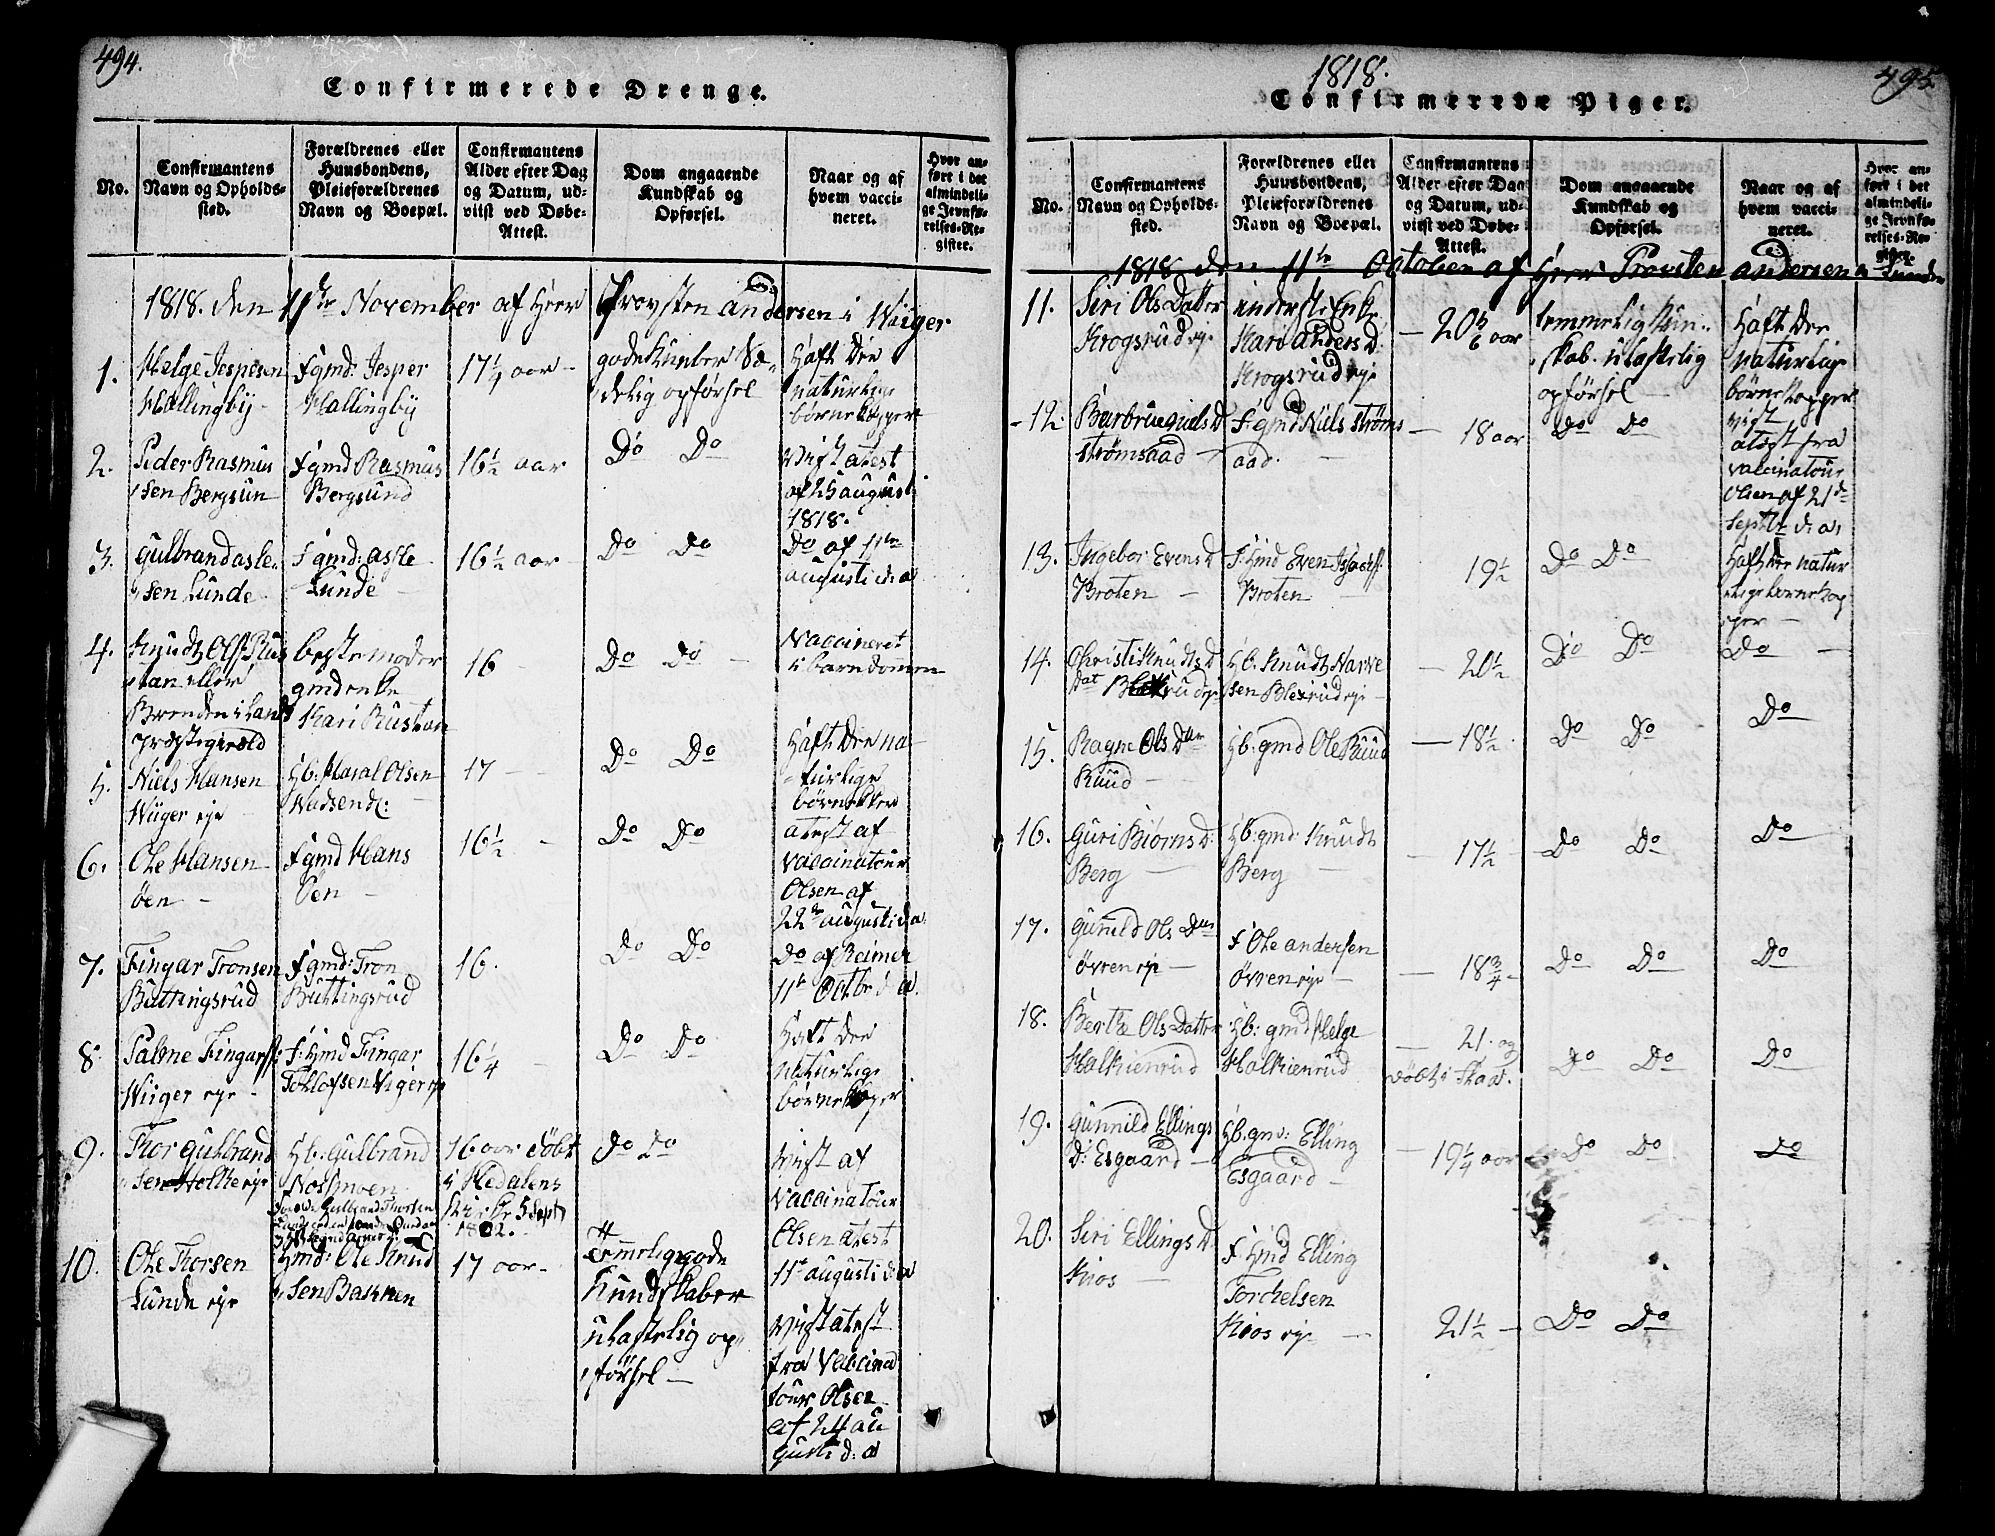 494.
Confirmerede Drenge.
No.
Confirmantens
Navn og Opholds-
sted.
Forældrenes eller
Huusbondens,
Pleieforældrenes
Navn og Boepæl.
Confirmantens
Alder efter Dag
og Datum, ud-
viist ved Døbe-
Attest.
Dom angaaende
Kundskab og
Opførsel.
Naar og af
hvem vacci-
neret.
Hvor an-
ført i det
almindeli-
ge Jevnfø-
relses-Re-
gister.
1818. den 11te November af Herr Provsten Andersen i Wiiger
1.
Helge Jespesen
Hallingby
F gmd: Jesper
Hallingby
17 1/4 aar
gode Kunber Sæ-
delig opførsel
Haft Die
naturlige
børnekopper
2.
Peder Rasmus
sen Bergsun
F gmd Rasmus
Bergsund
16 1/2 aar
Do Do
Viist atest
af 25 august
1818.
3.
Gulbrand Asle
sen Lunde
F gmd: Assle
Lunde
16 1/2 aar
Do Do
Do af 11te
augusti d. a
4.
Knudt Ols: Rus
tan eller
Brenden i Lands
præstegield
beste moder
gmd enke
Kari Rustan
16
Do Do
Vaccineret
i barndomen
5.
Niels Hansen
Wiiger eje
Hb: Haral Olsen
Wadsend:
17
Do Do
Haft Die na-
turlige
6.
Ole Hansen
Øen
F gmd Hans
Øen
16 1/2
Do Do
atest af
Vaccinatour
Olsen af
22de augusti d. a.
7.
Fingar Tronsen
Buttingsrud
F gmd: Tron
Buttingsrud
16.
Do Do
Do af Reimer
11te Octbr d. a.
8.
Palme Fingars:
Wiiger eje
F: Hmd Fingar
Tollofsen Viger eje
16 1/4
Do Do
Haft Die
naturlige
børnekoper
9.
Thor Gulbrand
sen Holte eje
Hb: Gulbrand
16 aar Døbt
i Hedalens
Kirke 5 Sept
1802.
Do Do
Viist af
Vaccinatour
Olsen atest
11te augusti d. a
10.
Ole Thorsen
Lunde eje
Hmd: Ole Knud
sen Bakken
17 aar
Temmelig gode
Kundskaber
ulastelig op-
førsel
Viist atest
fra Vaccina
tour Olsen
af 24 au
gusti d: a
1818.
495
Confirmerede Piger.
No.
Confirmantens
Navn og Opholds-
sted.
Forældrenes eller
Huusbondens,
Pleieforældrenes
Navn og Boepæl.
Confirmantens
Alder efter Dag
og Datum, ud-
viist ved Døbe-
Attest.
Dom angaaende
Kundskab og
Opførsel.
Naar og af
hvem vacci-
neret.
Hvor an-
ført i det
almindeli-
ge Jevnfø-
relses-Re-
gister.
1818 den 11te October af Herr Provsten Andersen
11.
Siri Ols Datter
Krogsrud eje
inderste Enke
Kari Anders D:
Krogsrud eje
20 5/6 aar
temmelig Kun-
skab. ulastelig
opførsel
Haft Die
naturlig
børnekopper
12.
Strømsaad
F: gmd Niels Strøms
aad.
18 aar
Do Do
Viist
atest fra
Vaccinatour
Olsen af 21de
Septbr d. a.
13.
Ingebor Evens D
Broten
F: Hmd Even Isachs:
Broten
19 1/2
Do Do
Haft Die natur
lige børnekop
per
14.
Christi Knudts D
Hb: Knudt Narve
sen Blexrud eje
20 1/2
Do Do
Do
15.
Ragne Ols Dtr
Ruud
Hb: gmd Ole Ruud
18 1/2
Do Do
Do
16.
Guri Biørns D:
Berg
Hb: gmd: Knudt
Berg
17 1/2
Do Do
Do
17.
Gunild Ols Dtr
Øvren eje
F Ole Andersen
Øvren eje
18 3/4
Do Do
Do
18.
Berthe Ols Datter
Halkienrud
Hb: gmd Helge
Halkienrud
21. og
Døbt i
Do Do
Do
19.
Gunnild Ellings
D: Esgaard
Hb. gm: Elling
Esgaard
19 1/4 aar
Do Do
Do
20.
Siri Ellings D
Kios
F: Hmd Elling
Torchelsen
Kios eje
21 1/2
Do Do